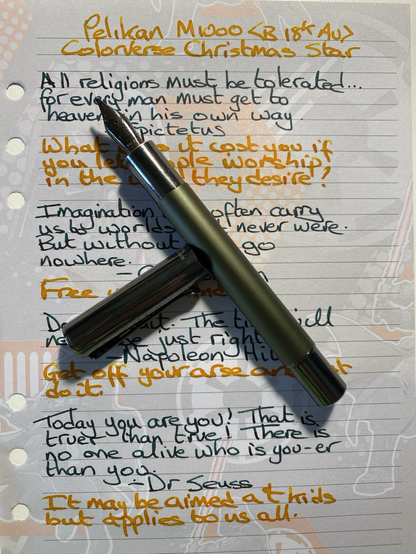 Pelikan M1000 <B 18ct Au>
Colorverse Christmas Star
All religions must be tolerated...
for every man must get to
heaven in his own way.
pictetus
What it cost you if
you let people worship
in the they desire?
Imagination often carry
us to worlds never were.
But without go
nowhere.
Free
The will
just right
- Napoleon Hill
Get off your arse and
do it.
Today you are you! That is
truer than true! There is
no one alive who is you-er
than you.
- Dr Seuss
It may be aimed at kids
but applies to us all.